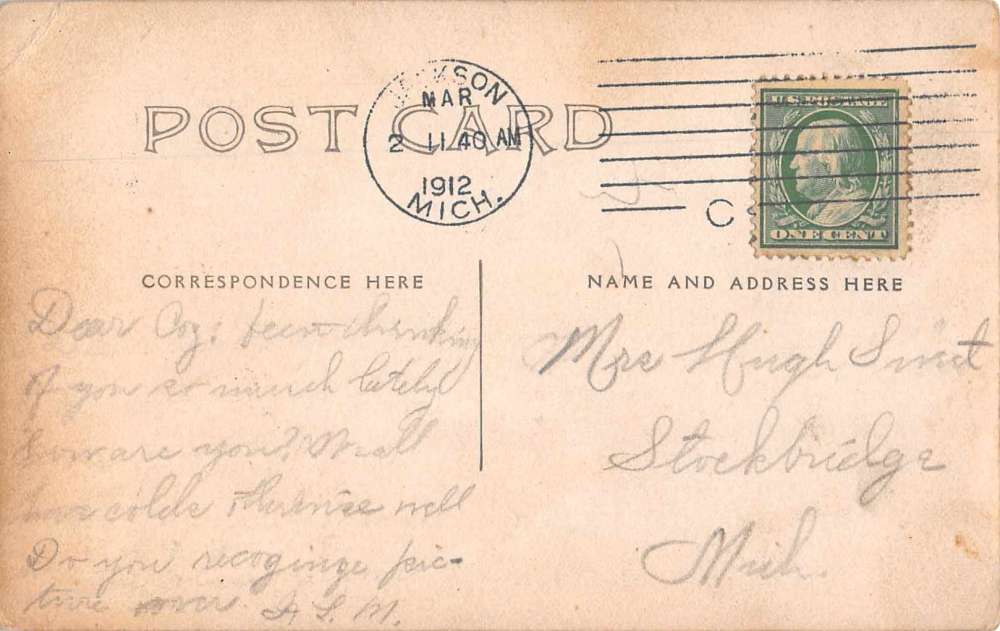 JACKSON
MAR
2 11 40 AM
1912
MICH.
POST CARD
U.S. POSTAGE
ONE CENT
C
CORRESPONDENCE HERE
NAME AND ADDRESS HERE
Dear Coz: been thinking
of you so much lately
how are you? We all
have colds otherwise well
Do you recoginze pic-
ture over. L. M.
Mrs Hugh
Stockbridge
Mich.